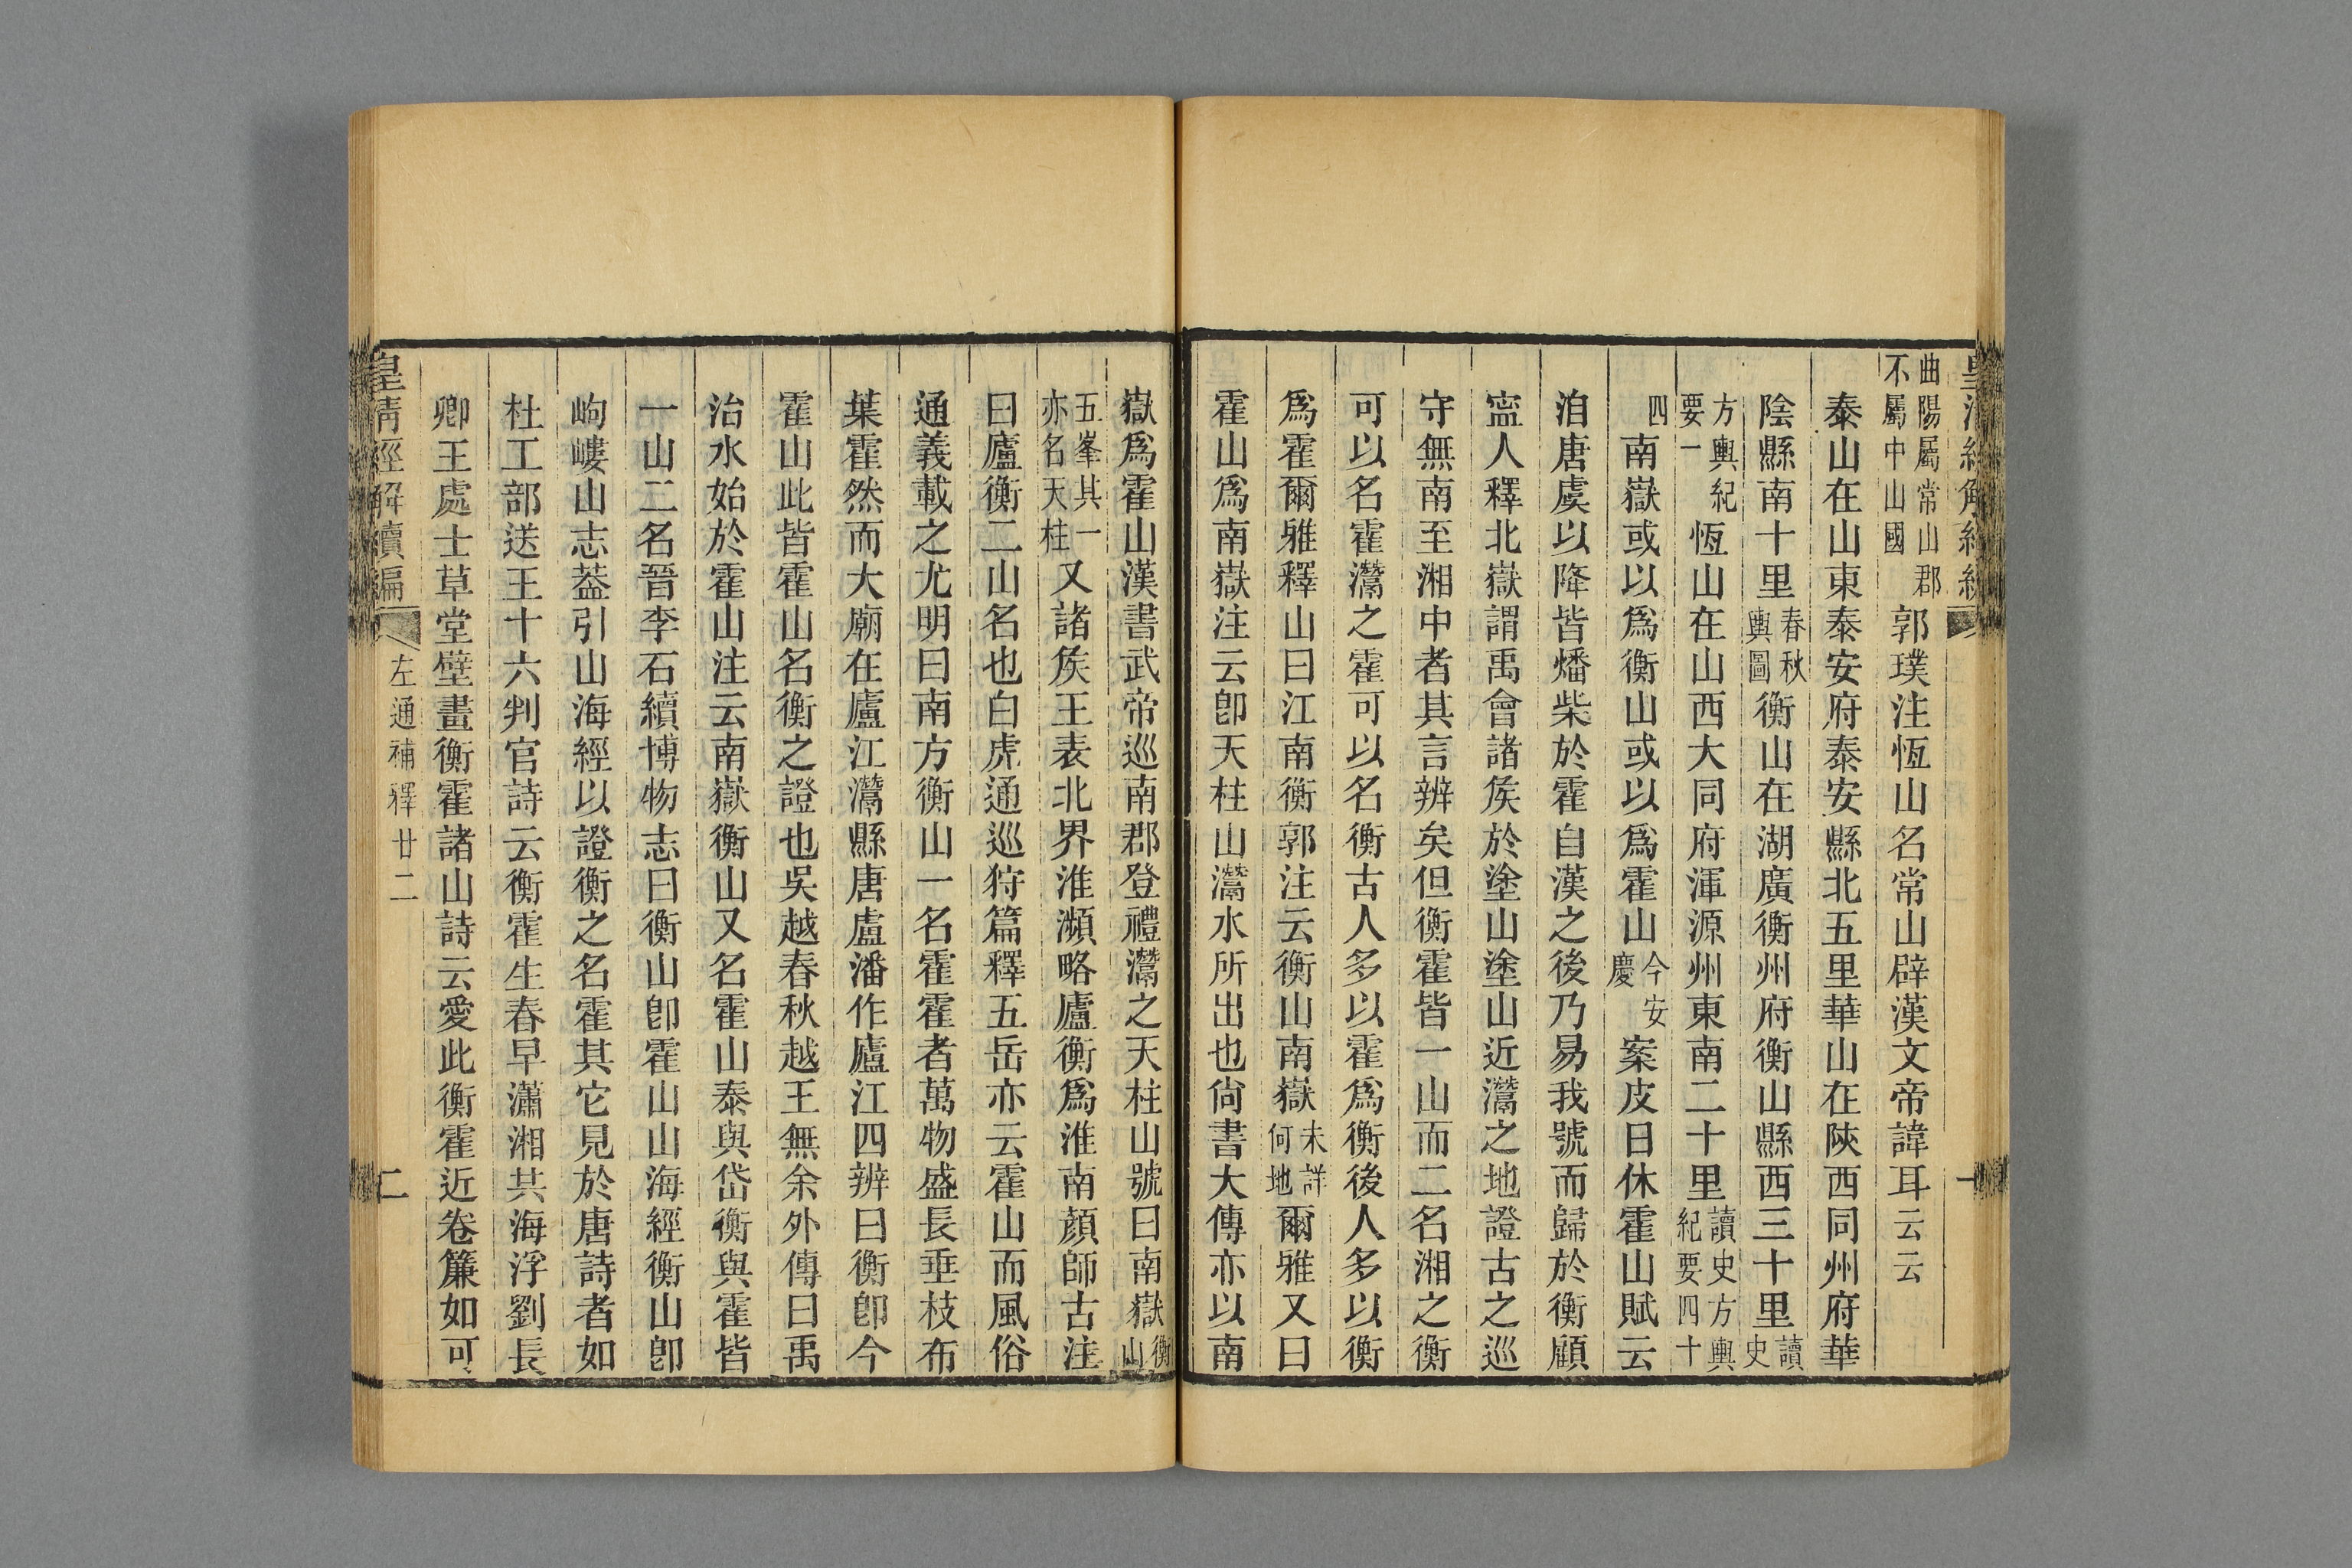 曲陽屬常山郡不屬中山國郭璞注恆山名常山辟漢文帝諱耳云云
泰山在山東泰安府泰安縣北五里華山在陝西同州府華
陰縣南十里春秋輿圖衡山在湖廣衡州府衡山縣西三十里讀史
方輿紀要一恆山在山西大同府渾源州東南二十里讀史方輿紀要四十
四南嶽或以爲衡山或以爲霍山今安慶案皮日休霍山賦云
洎唐虞以降皆燔柴於霍自漢之後乃易我號而歸於衡顧
寍人釋北嶽謂禹會諸矦於塗山塗山近灊之地證古之巡
守無南至湘中者其言辨矣但衡霍皆一山而二名湘之衡
可以名霍灊之霍可以名衡古人多以霍爲衡後人多以衡
爲霍爾雅釋山曰江南衡郭注云衡山南嶽未詳何地爾雅又曰
霍山爲南嶽注云卽天柱山灊水所出也尙書大傳亦以南
嶽爲霍山漢書武帝巡南郡登禮灊之天柱山號曰南嶽衡山
五峯其一亦名天柱又諸矦王表北界淮瀕略廬衡爲淮南顏師古注
曰廬衡二山名也白虎通巡狩篇釋五岳亦云霍山而風俗
通義載之尤明曰南方衡山一名霍霍者萬物盛長垂枝布
葉霍然而大廟在廬江灊縣唐盧潘作廬江四辨曰衡卽今
霍山此皆霍山名衡之證也吳越春秋越王無余外傳曰禹
治水始於霍山注云南嶽衡山又名霍山泰與岱衡與霍皆
一山二名晉李石續博物志曰衡山卽霍山山海經衡山卽
岣嶁山志葢引山海經以證衡之名霍其它見於唐詩者如
杜工部送王十六判官詩云衡霍生春早瀟湘共海浮劉長
卿王處士草堂壁畫衡霍諸山詩云愛此衡霍近卷簾如可
皇清經解續編 左通補釋廿二 二